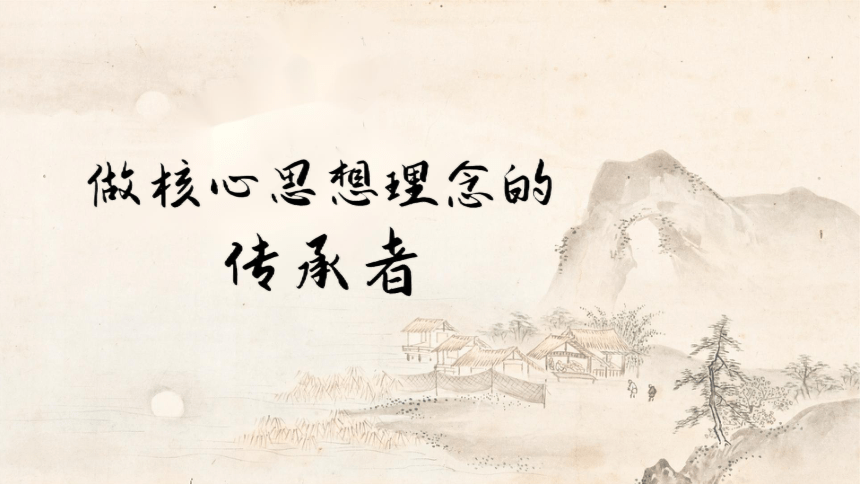 做核心思想理念的
传承者